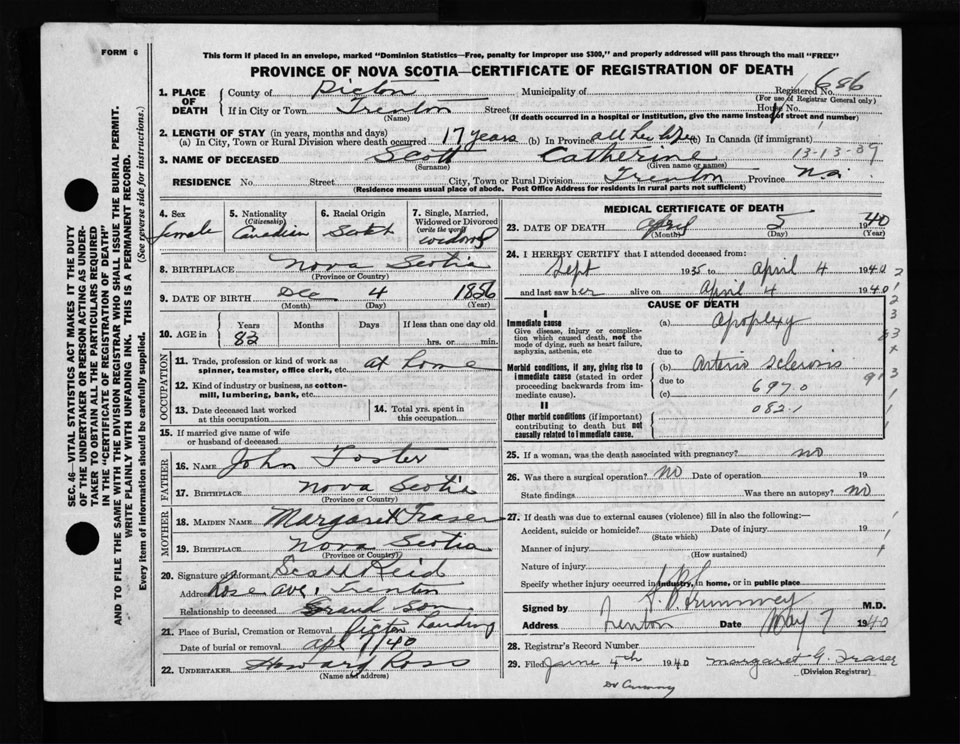 FORM 6
This form if placed in an envelope, marked "Dominion Statistics—Free, penalty for improper use $300," and properly addressed will pass through the mail "FREE"
PROVINCE OF NOVA SCOTIA—CERTIFICATE OF REGISTRATION OF DEATH
SEC. 46—VITAL STATISTICS ACT MAKES IT THE DUTY
OF THE UNDERTAKER OR PERSON ACTING AS UNDER-
TAKER TO OBTAIN ALL THE PARTICULARS REQUIRED
IN THE "CERTIFICATE OF REGISTRATION OF DEATH"
AND TO FILE THE SAME WITH THE DIVISION REGISTRAR WHO SHALL ISSUE THE BURIAL PERMIT.
WRITE PLAINLY WITH UNFADING INK. THIS IS A PERMANENT RECORD.
Every item of information should be carefully supplied. (See reverse side for instructions.)
1. PLACE OF DEATH County of Pictou Municipality of Registered No. 686
(For use of Registrar General only)
If in City or Town Trenton Street House No.
(Name) (If death occurred in a hospital or institution, give the name instead of street and number)
2. LENGTH OF STAY (in years, months and days)
(a) In City, Town or Rural Division where death occurred 17 years (b) In Province all her life (c) In Canada (if immigrant)
3. NAME OF DECEASED Scott Catherine 13-13-39
(Surname) (Given name or names)
RESIDENCE No. Street City, Town or Rural Division Trenton Province N.S.
(Residence means usual place of abode. Post Office Address for residents in rural parts not sufficient)
4. Sex female
5. Nationality (Citizenship) Canadian
6. Racial Origin Scotch
7. Single, Married, Widowed or Divorced (write the word) widowed
8. BIRTHPLACE Nova Scotia
(Province or Country)
9. DATE OF BIRTH Dec 4 1856
(Month) (Day) (Year)
10. AGE in Years 83 Months Days If less than one day
hrs. or min.
OCCUPATION
11. Trade, profession or kind of work as
spinner, teamster, office clerk, etc. at home
12. Kind of industry or business, as cotton-
mill, lumbering, bank, etc.
13. Date deceased last worked
at this occupation
14. Total yrs. spent in
this occupation
15. If married give name of wife
or husband of deceased
FATHER
16. NAME John Foster
17. BIRTHPLACE Nova Scotia
(Province or Country)
MOTHER
18. MAIDEN NAME Margaret Fraser
19. BIRTHPLACE Nova Scotia
(Province or Country)
20. Signature of Informant Scott Reid
Address Rose ave, Trenton
Relationship to deceased Grand Son
21. Place of Burial, Cremation or Removal Pictou Landing
Date of burial or removal apl 7/40
22. UNDERTAKER Howard Ross
(Name and address)
MEDICAL CERTIFICATE OF DEATH
23. DATE OF DEATH April 5 1940
(Month) (Day) (Year)
24. I HEREBY CERTIFY that I attended deceased from:
Sept 1935 to April 4 1940
and last saw her alive on April 4 1940
CAUSE OF DEATH
I
Immediate cause (a) Apoplexy
Give disease, injury or complica-
tion which caused death, not the
mode of dying, such as heart failure,
asphyxia, asthenia, etc
due to
Morbid conditions, if any, giving rise to
immediate cause (stated in order
proceeding backwards from im-
mediate cause).
(b) Arterio Sclerosis
due to 697.0
(c) 082.1
II
Other morbid conditions (if important)
contributing to death but not
causally related to immediate cause.
25. If a woman, was the death associated with pregnancy? no
26. Was there a surgical operation? No Date of operation 19
State findings Was there an autopsy? No
27. If death was due to external causes (violence) fill in also the following:—
Accident, suicide or homicide? Date of injury 19
(State which)
Manner of injury
(How sustained)
Nature of injury
Specify whether injury occurred in industry, in home, or in public place
Signed by M.D.
Address Trenton Date May 7 1940
28. Registrar's Record Number
29. Filed June 4th 1940 Margaret G. Fraser
(Division Registrar)